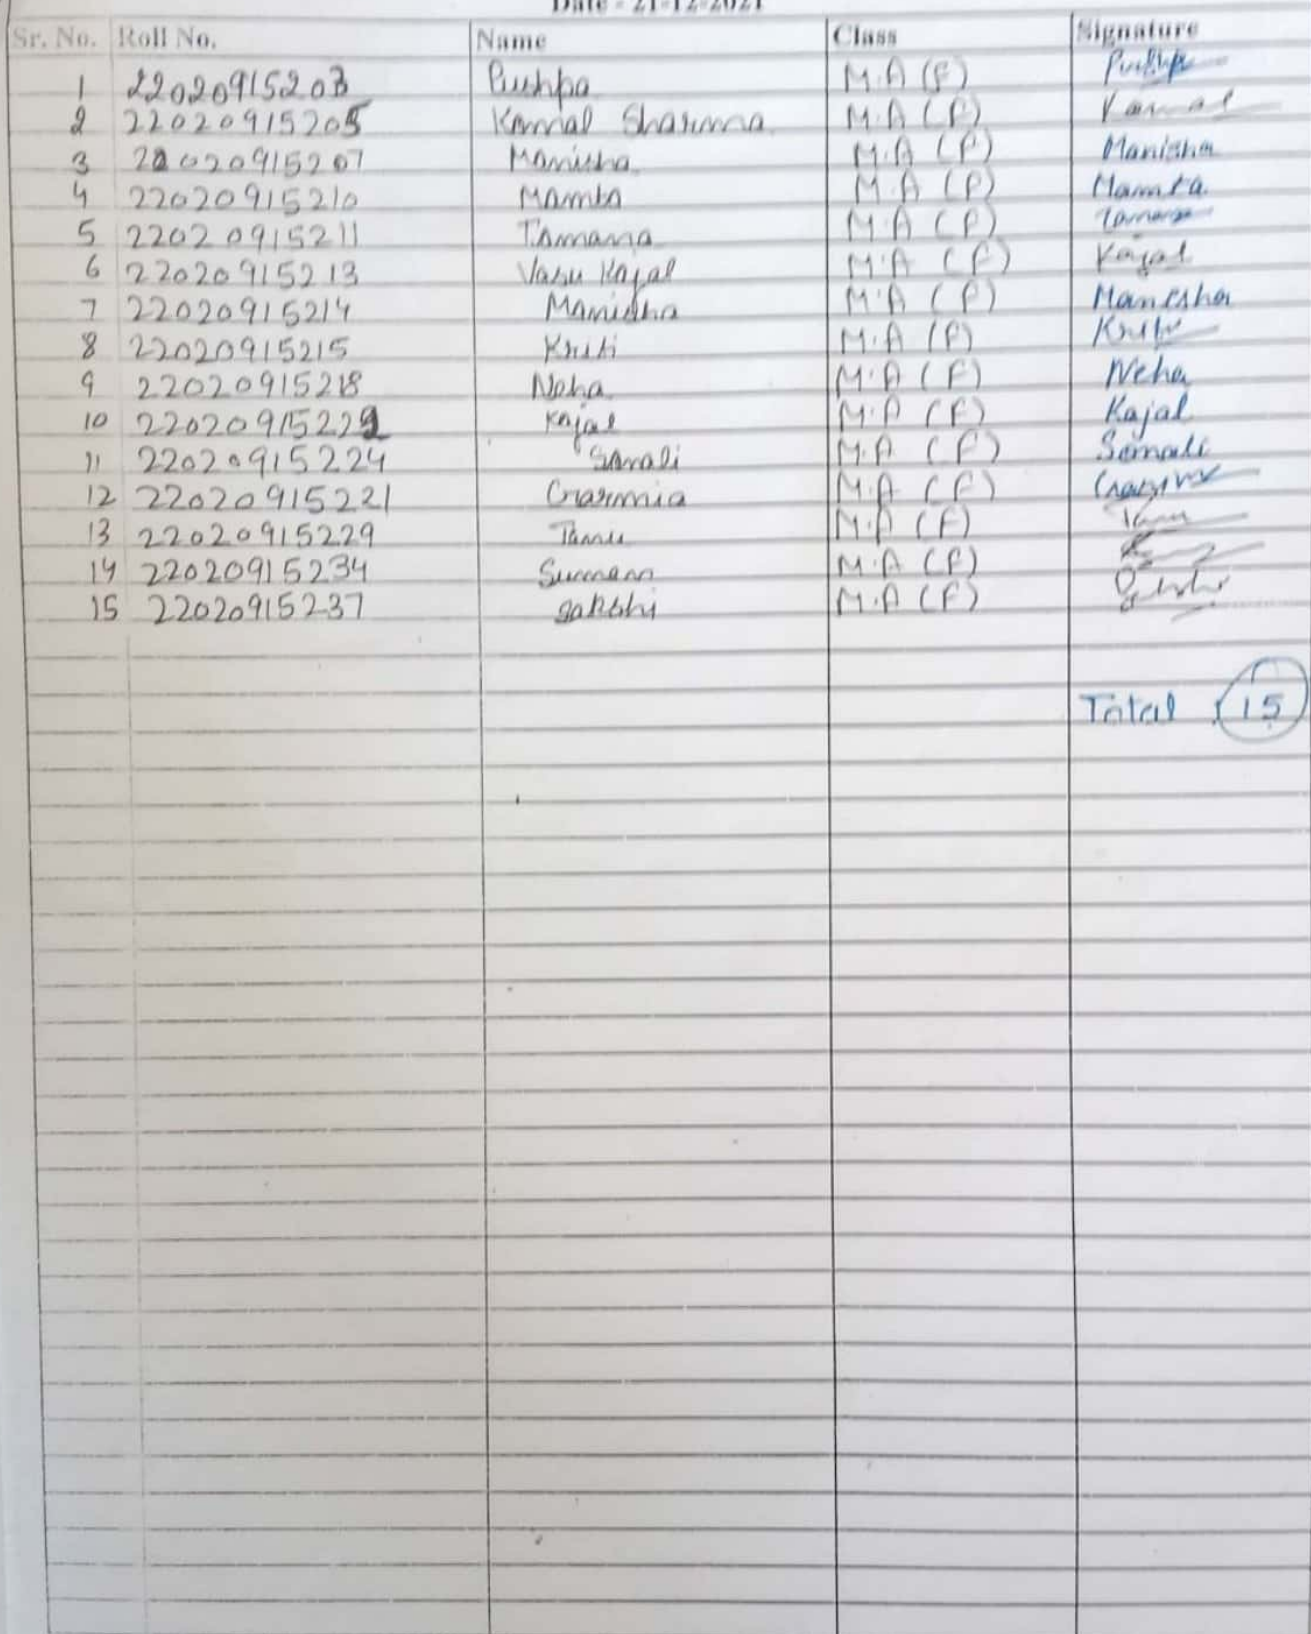 Date - 21-12-2021
Sr. No. Roll No. Name Class Signature
1 22020915203 Pushpa M.A (F) Pushpa
2 22020915205 Komal Sharma M.A (F) Komal
3 22020915207 Manisha M.A (F) Manisha
4 22020915210 Mamta M.A (F) Mamta
5 22020915211 Tamana M.A (F)
6 22020915213 Vasu Kajal M.A (F) Kajal
7 22020915214 Manisha M.A (F) Manisha
8 22020915215 Kriti M.A (F) Kriti
9 22020915218 Neha M.A (F) Neha
10 2202091522 Kajal M.A (F) Kajal
11 22020915224 Sonali M.A (F) Sonali
12 22020915221 Garmia M.A (F)
13 22020915229 Tannu M.A (F)
14 22020915234 Sumann M.A (F)
15 22020915237 Sakshi M.A (F)
Total 15